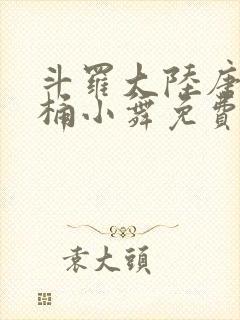 斗羅大陸唐
桶小舞免費
袁大頭